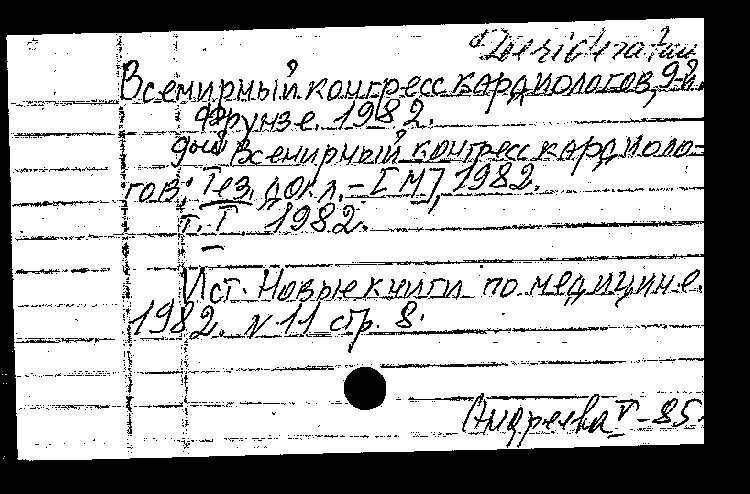 Desideratum
Всемирный конгресс кардиологов, 9-й.
Фрунзе. 1982.
9ый Всемирный конгресс кардиоло-
гов: Тез. докл. - [М], 1982.
т. I 1982.
Ист. Новые книги по медицине.
1982. N 11 стр. 8.
Андреева V-85.